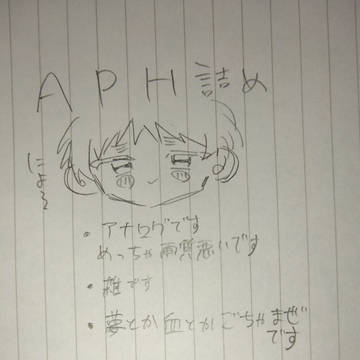 APH詰め
にょろ
・アナログです
めっちゃ画質悪いです
・雑です
・夢とか血とかごちゃまぜ
です